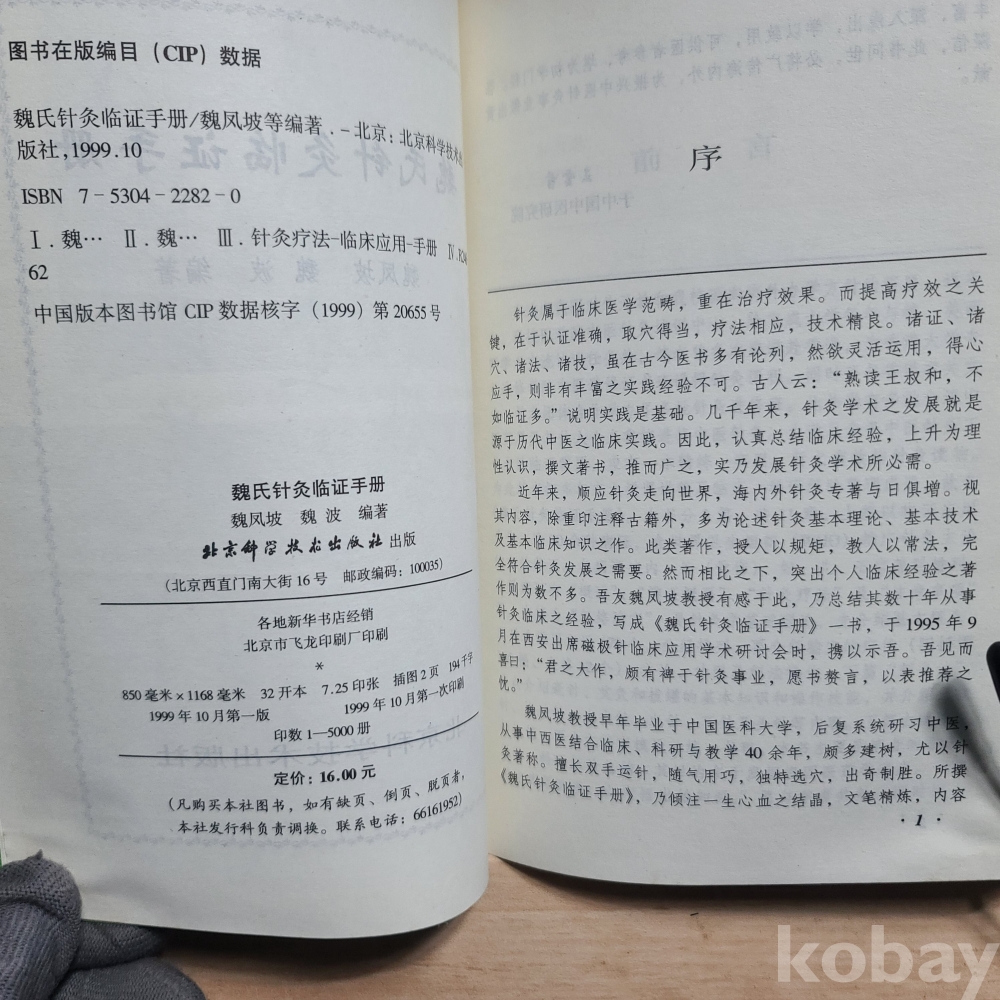 图书在版编目（CIP）数据
魏氏针灸临证手册/魏凤坡等编著．－北京：北京科学技术
版社，1999.10
ISBN 7－5304－2282－0
Ⅰ．魏… Ⅱ．魏… Ⅲ．针灸疗法－临床应用－手册 Ⅳ．R24
62
中国版本图书馆 CIP 数据核字（1999）第 20655 号
魏氏针灸临证手册
魏凤坡 魏 波 编著
北京科学技术出版社 出版
（北京西直门南大街 16 号 邮政编码：100035）
各地新华书店经销
北京市飞龙印刷厂印刷
*
850 毫米×1168 毫米 32 开本 7.25 印张 插图 2 页 194 千字
1999 年 10 月第一版 1999 年 10 月第一次印刷
印数 1—5000 册
定价：16.00 元
（凡购买本社图书，如有缺页、倒页、脱页者，
本社发行科负责调换。联系电话：66161952）
序
针灸属于临床医学范畴，重在治疗效果。而提高疗效之关
键，在于认证准确，取穴得当，疗法相应，技术精良。诸证、诸
穴、诸法、诸技，虽在古今医书多有论列，然欲灵活运用，得心
应手，则非有丰富之实践经验不可。古人云：“熟读王叔和，不
如临证多。”说明实践是基础。几千年来，针灸学术之发展就是
源于历代中医之临床实践。因此，认真总结临床经验，上升为理
性认识，撰文著书，推而广之，实乃发展针灸学术所必需。
近年来，顺应针灸走向世界，海内外针灸专著与日俱增。视
其内容，除重印注释古籍外，多为论述针灸基本理论、基本技术
及基本临床知识之作。此类著作，授人以规矩，教人以常法，完
全符合针灸发展之需要。然而相比之下，突出个人临床经验之著
作则为数不多。吾友魏凤坡教授有感于此，乃总结其数十年从事
针灸临床之经验，写成《魏氏针灸临证手册》一书，于 1995 年 9
月在西安出席磁极针临床应用学术研讨会时，携以示吾。吾见而
喜曰：“君之大作，颇有裨于针灸事业，愿书赘言，以表推荐之
忱。”
魏凤坡教授早年毕业于中国医科大学，后复系统研习中医，
从事中西医结合临床、科研与教学 40 余年，颇多建树，尤以针
灸著称。擅长双手运针，随气用巧，独特选穴，出奇制胜。所撰
《魏氏针灸临证手册》，乃倾注一生心血之结晶，文笔精炼，内容
·1·
kobay